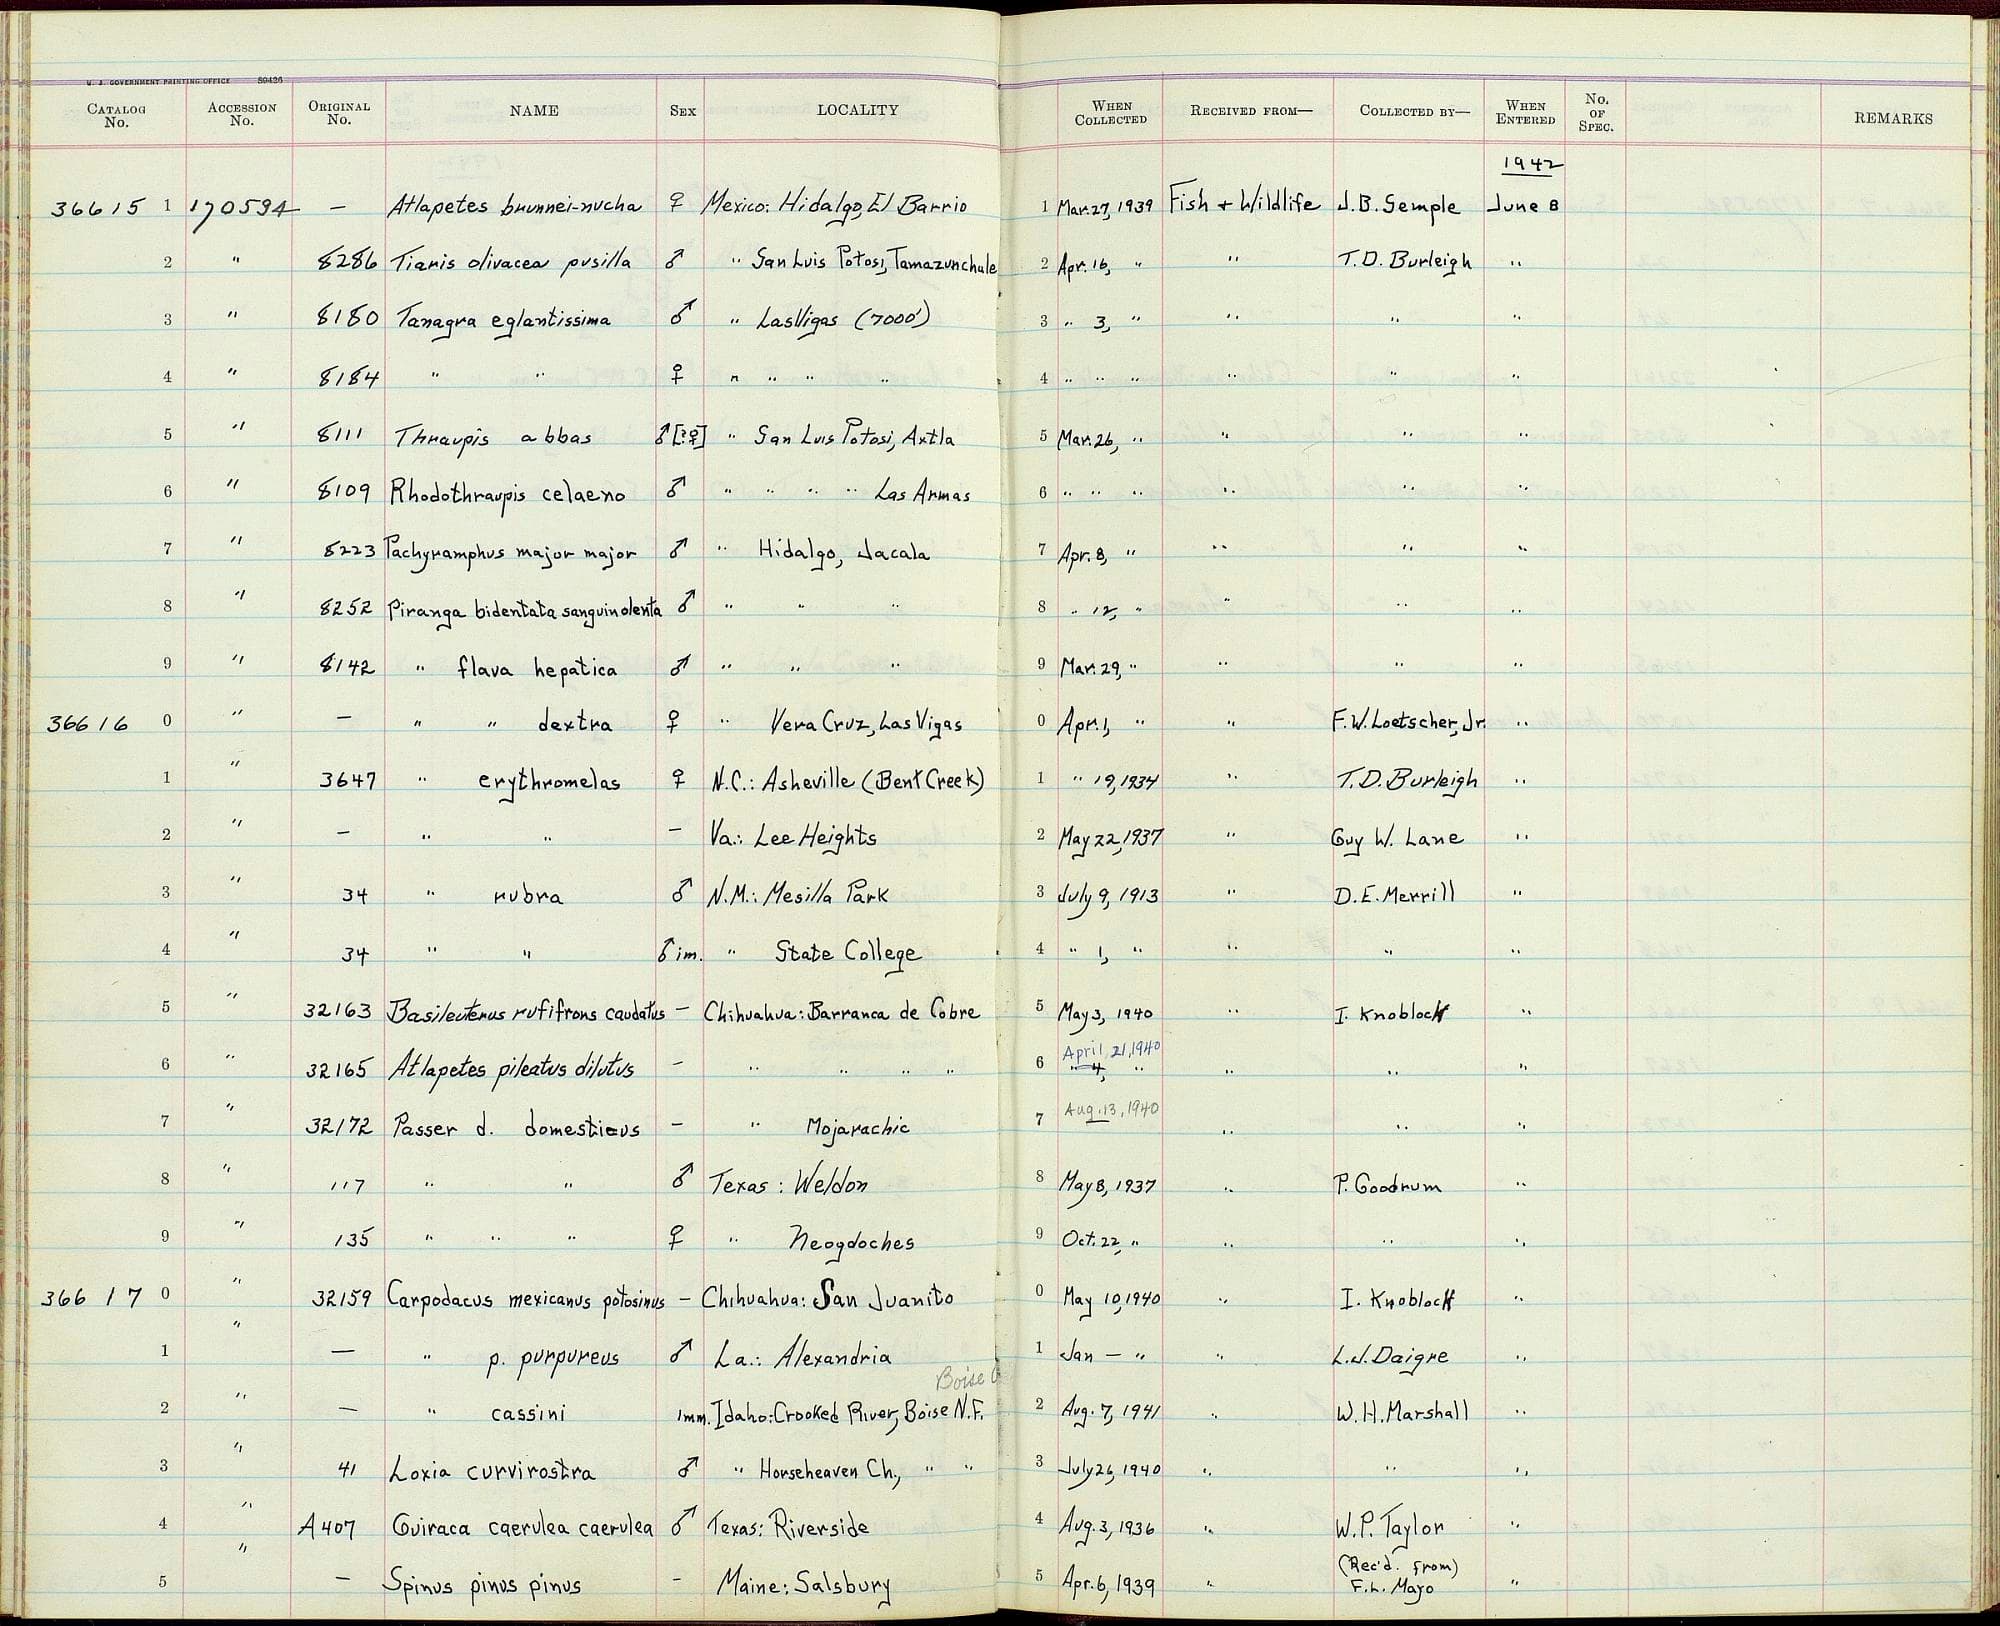 U. S. GOVERNMENT PRINTING OFFICE 59426
CATALOG No. ACCESSION No. ORIGINAL No. NAME SEX LOCALITY WHEN COLLECTED RECEIVED FROM— COLLECTED BY— WHEN ENTERED No. OF SPEC. REMARKS
1942
36615 1 170594 — Atlapetes brunnei-nucha ♀ Mexico: Hidalgo, El Barrio 1 Mar. 27, 1939 Fish + Wildlife J.B. Semple June 8
2 " 8286 Tiaris olivacea pusilla ♂ " San Luis Potosi, Tamazunchale 2 Apr. 16, " " T.D. Burleigh "
3 " 8180 Tanagra eglantissima ♂ " Las Vigas (7000') 3 " 3, " " " "
4 " 8184 " " ♀ " " " " 4 " " " " " "
5 " 8111 Thraupis abbas ♂[?♀] " San Luis Potosi, Axtla 5 Mar. 26, " " " "
6 " 8109 Rhodothraupis celaeno ♂ " " " " Las Armas 6 " " " " " "
7 " 8223 Pachyramphus major major ♂ " Hidalgo, Jacala 7 Apr. 8, " " " "
8 " 8252 Piranga bidentata sanguinolenta ♂ " " " 8 " 12, " " " "
9 " 8142 " flava hepatica ♂ " " " 9 Mar. 29, " " " "
36616 0 " — " " dextra ♀ " Vera Cruz, Las Vigas 0 Apr. 1, " " F.W. Loetscher, Jr. "
1 " 3647 " erythromelas ♀ N.C.: Asheville (Bent Creek) 1 " 19, 1934 " T.D. Burleigh "
2 " — " " — Va.: Lee Heights 2 May 22, 1937 " Guy W. Lane "
3 " 34 " rubra ♂ N.M.: Mesilla Park 3 July 9, 1913 " D.E. Merrill "
4 " 34 " " ♂ im. " State College 4 " 1, " " " "
5 " 32163 Basileuterus rufifrons caudatus — Chihuahua: Barranca de Cobre 5 May 3, 1940 " I. Knobloch "
April 21, 1940
6 " 32165 Atlapetes pileatus dilutus — " " " " 6 " 4, " " " "
7 " 32172 Passer d. domesticus — " Mojarachic 7 Aug. 13, 1940 " " "
8 " 117 " " ♂ Texas: Weldon 8 May 8, 1937 " P. Goodrum "
9 " 135 " " " ♀ " Neogdoches 9 Oct. 22, " " " "
36617 0 " 32159 Carpodacus mexicanus potosinus — Chihuahua: San Juanito 0 May 10, 1940 " I. Knobloch "
1 " — " p. purpureus ♂ La.: Alexandria 1 Jan — " " L.J. Daigre "
Boise
2 " — " cassini imm. Idaho: Crooked River, Boise N.F. 2 Aug. 7, 1941 " W.H. Marshall "
3 " 41 Loxia curvirostra ♂ " Horseheaven Ch., " " 3 July 26, 1940 " " "
4 " A407 Guiraca caerulea caerulea ♂ Texas: Riverside 4 Aug. 3, 1936 " W.P. Taylor "
(Rec'd. from)
5 " — Spinus pinus pinus — Maine: Salsbury 5 Apr. 6, 1939 " F.L. Mayo "